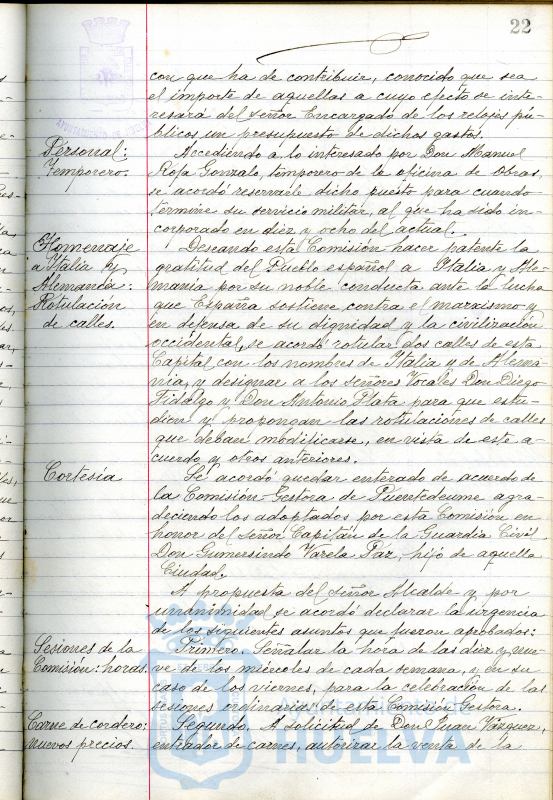 22
con que ha de contribuir, conocido que sea
el importe de aquellas a cuyo efecto se inte-
resará del señor Encargado de los relojes pú-
blicos un presupuesto de dichos gastos.
Personal:
Temporero.
Accediendo a lo interesado por Don Manuel
Roja Gonzalo, temporero de la oficina de Obras,
se acordó reservarle dicho puesto para cuando
termine su servicio militar, al que ha sido in-
corporado en diez y ocho del actual.
Homenaje
a Italia y
Alemania:
Rotulación
de calles.
Deseando esta Comisión hacer patente la
gratitud del Pueblo español a Italia y Ale-
mania por su noble conducta ante la lucha
que España sostiene contra el marxismo y
en defensa de su dignidad y la civilización
occidental, se acordó rotular dos calles de esta
Capital con los nombres de Italia y de Alema-
nia, y designar a los señores Vocales Don Diego
Fidalgo y Don Antonio Plata para que estu-
dien y propongan las rotulaciones de calles
que deban modificarse, en vista de este a-
cuerdo y otros anteriores.
Cortesía
Se acordó quedar enterado de acuerdo de
la Comisión Gestora de Puentedeume agra-
deciendo los adoptados por esta Comisión en
honor del señor Capitán de la Guardia Civil
Don Gumersindo Varela Paz, hijo de aquella
Ciudad.
A propuesta del señor Alcalde y por
unanimidad se acordó declarar la urgencia
de los siguientes asuntos que fueron aprobados:
Sesiones de la
Comisión: horas.
Primero. Señalar la hora de las diez y nue-
ve de los miércoles de cada semana, y en su
caso de los viernes, para la celebración de las
sesiones ordinarias de esta Comisión Gestora.
Carne de cordero:
nuevos precios.
Segundo. A solicitud de Don Juan Vázquez,
entrador de carnes, autorizar la venta de la
HUELVA